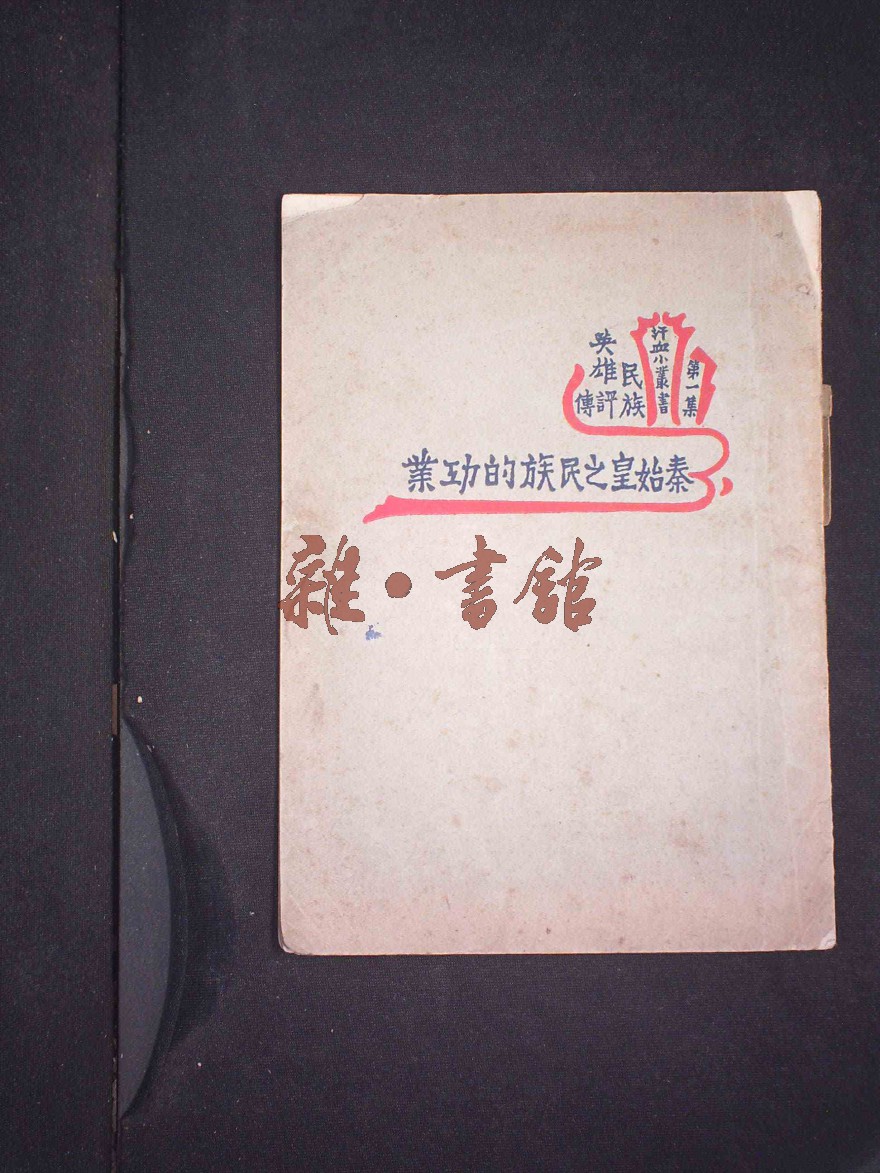 第一集
汗血小叢書
民族
英雄
評傳
秦始皇之民族的功業
雜·書館